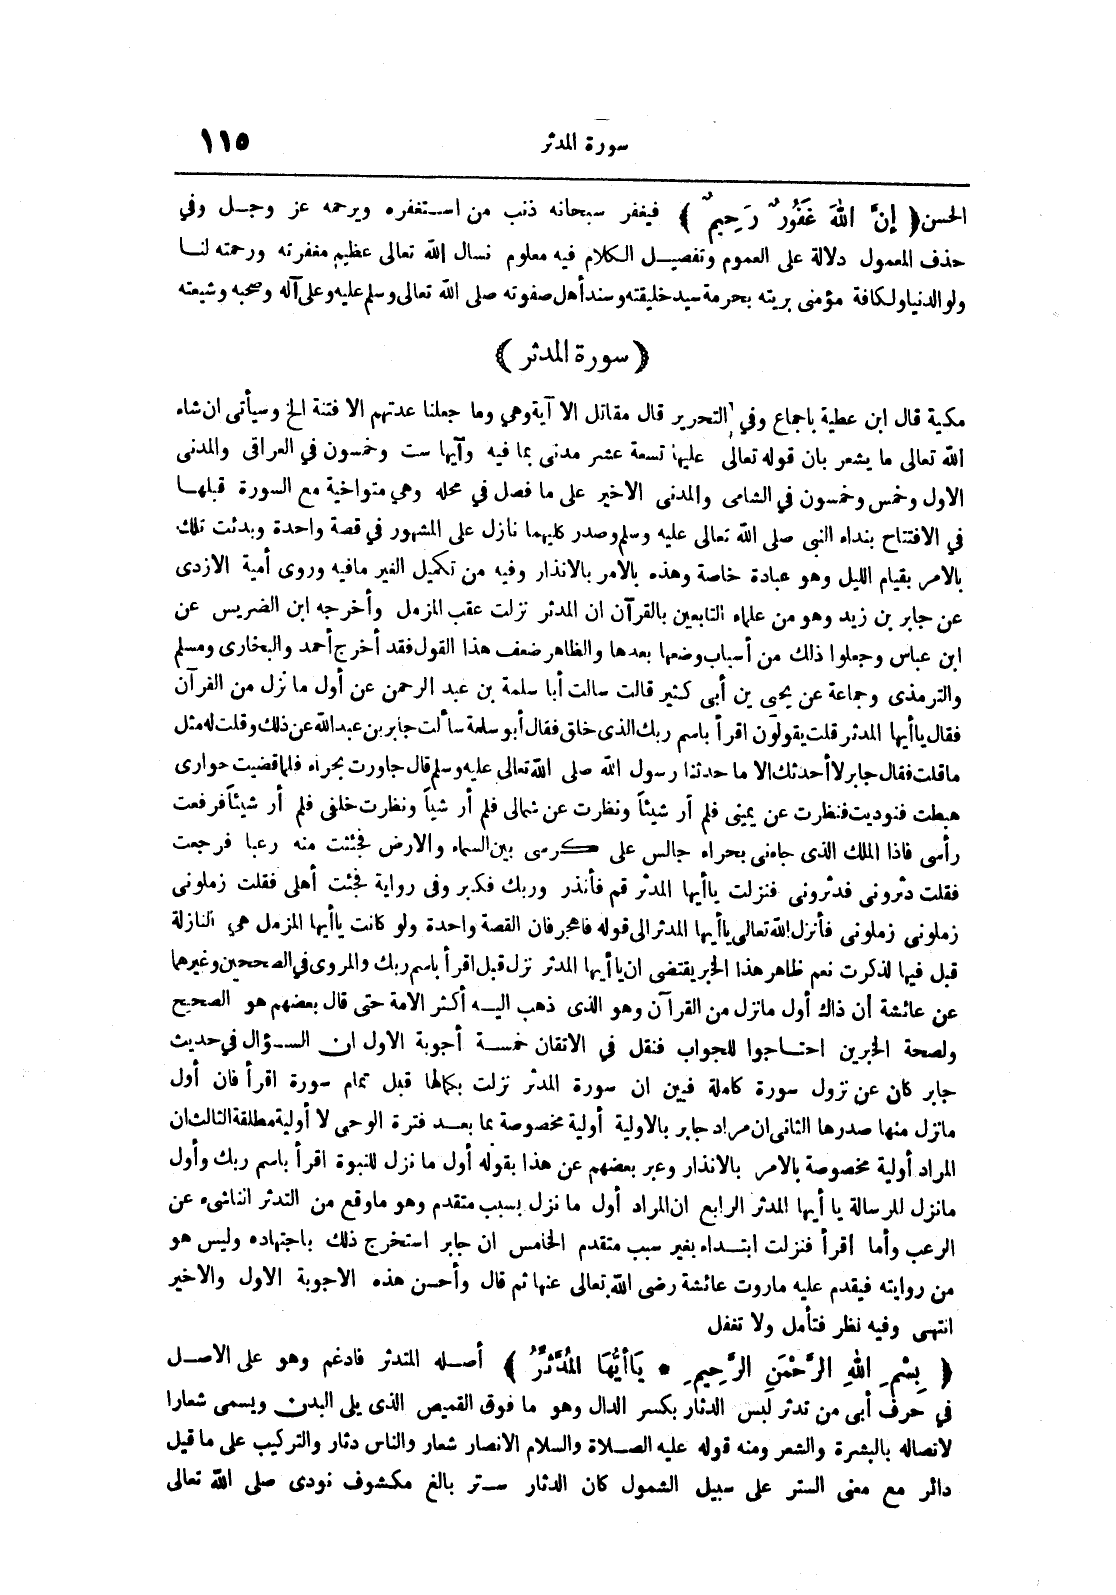 سورة المدثر ١١٥
الحسن ﴿ إِنَّ اللهَ غَفُورٌ رَحِيمٌ ﴾ فيغفر سبحانه ذنب من استغفره ويرحمه عز وجل وفي
حذف المعمول دلالة على العموم وتفصيل الكلام فيه معلوم نسال الله تعالى عظيم مغفرته ورحمته لنا
ولوالدنيا ولكافة مؤمنى بريته بحرمة سيد خليقته وسند أهل صفوته صلى الله تعالى وسلم عليه وعلى آله وصحبه وشيعته
﴿ سورة المدثر ﴾
مكية قال ابن عطية باجماع وفي التحرير قال مقاتل الا آية وهي وما جعلنا عدتهم الا فتنة الخ وسيأتى ان شاء
الله تعالى ما يشعر بان قوله تعالى عليها تسعة عشر مدنى بما فيه وآيها ست وخمسون في العراقى والمدنى
الاول وخمس وخمسون في الشامى والمدنى الاخير على ما فصل في محله وهي متواخية مع السورة قبلها
في الافتتاح بنداء النبى صلى الله تعالى عليه وسلم وصدر كليهما نازل على المشهور في قصة واحدة وبدئت تلك
بالامر بقيام الليل وهو عبادة خاصة وهذه بالامر بالانذار وفيه من تكميل الغير مافيه وروى أمية الازدى
عن جابر بن زيد وهو من علماء التابعين بالقرآن ان المدثر نزلت عقب المزمل وأخرجه ابن الضريس عن
ابن عباس وجعلوا ذلك من أسباب وضعها بعدها والظاهر ضعف هذا القول فقد أخرج أحمد والبخارى ومسلم
والترمذى وجماعة عن يحيى بن أبى كثير قالت سالت أبا سلمة بن عبد الرحمن عن أول ما نزل من القرآن
فقال ياأيها المدثر قلت يقولون اقرأ باسم ربك الذى خلق فقال أبو سلمة سألت جابر بن عبد الله عن ذلك وقلت له مثل
ماقلت فقال جابر لا أحدثك الا ما حدثنا رسول الله صلى الله تعالى عليه وسلم قال جاورت بحراء فلما قضيت حوارى
هبطت فنوديت فنظرت عن يمينى فلم أر شيئاً ونظرت عن شمالى فلم أر شيأ ونظرت خلفى فلم أر شيئاً فرفعت
رأسى فاذا الملك الذى جاءنى بحراء جالس على كرسى بين السماء والارض فجئثت منه رعبا فرجعت
فقلت دثرونى فدثرونى فنزلت ياأيها المدثر قم فأنذر وربك فكبر وفى رواية فجئت أهلى فقلت زملونى
زملونى زملونى فأنزل الله تعالى ياأيها المدثر الى قوله فاهجر فان القصة واحدة ولو كانت ياأيها المزمل هي النازلة
قبل فيها لذكرت نعم ظاهر هذا الخبر يقتضى ان ياأيها المدثر نزل قبل اقرأ باسم ربك والمروى في الصححين وغيرهما
عن عائشة أن ذاك أول مانزل من القرآن وهو الذى ذهب اليه أكثر الامة حتى قال بعضهم هو الصحيح
ولصحة الخبرين احتاجوا للجواب فنقل في الاتقان خمسة أجوبة الاول ان السؤال في حديث
جابر كان عن نزول سورة كاملة فبين ان سورة المدثر نزلت بكمالها قبل تمام سورة اقرأ فان أول
مانزل منها صدرها الثانى ان مراد جابر بالاولية أولية مخصوصة بما بعد فترة الوحى لا أولية مطلقة الثالث ان
المراد أولية مخصوصة بالامر بالانذار وعبر بعضهم عن هذا بقوله أول ما نزل للنبوة اقرأ باسم ربك وأول
مانزل للرسالة يا أيها المدثر الرابع ان المراد أول ما نزل بسبب متقدم وهو ماوقع من التدثر الناشىء عن
الرعب وأما اقرأ فنزلت ابتداء بغير سبب متقدم الخامس ان جابر استخرج ذلك باجتهاده وليس هو
من روايته فيقدم عليه ماروت عائشة رضى الله تعالى عنها ثم قال وأحسن هذه الاجوبة الاول والاخير
انتهى وفيه نظر فتأمل ولا تغفل
﴿ بِسْمِ اللهِ الرَّحْمَنِ الرَّحِيمِ * يَاأَيُّهَا المُدَّثِّرُ ﴾ أصله المتدثر فادغم وهو على الاصل
في حرف أبى من تدثر لبس الدثار بكسر الدال وهو ما فوق القميص الذى يلى البدن ويسمى شعارا
لاتصاله بالبشرة والشعر ومنه قوله عليه الصلاة والسلام الانصار شعار والناس دثار والتركيب على ما قيل
دائر مع معنى الستر على سبيل الشمول كان الدثار ستر بالغ مكشوف نودى صلى الله تعالى